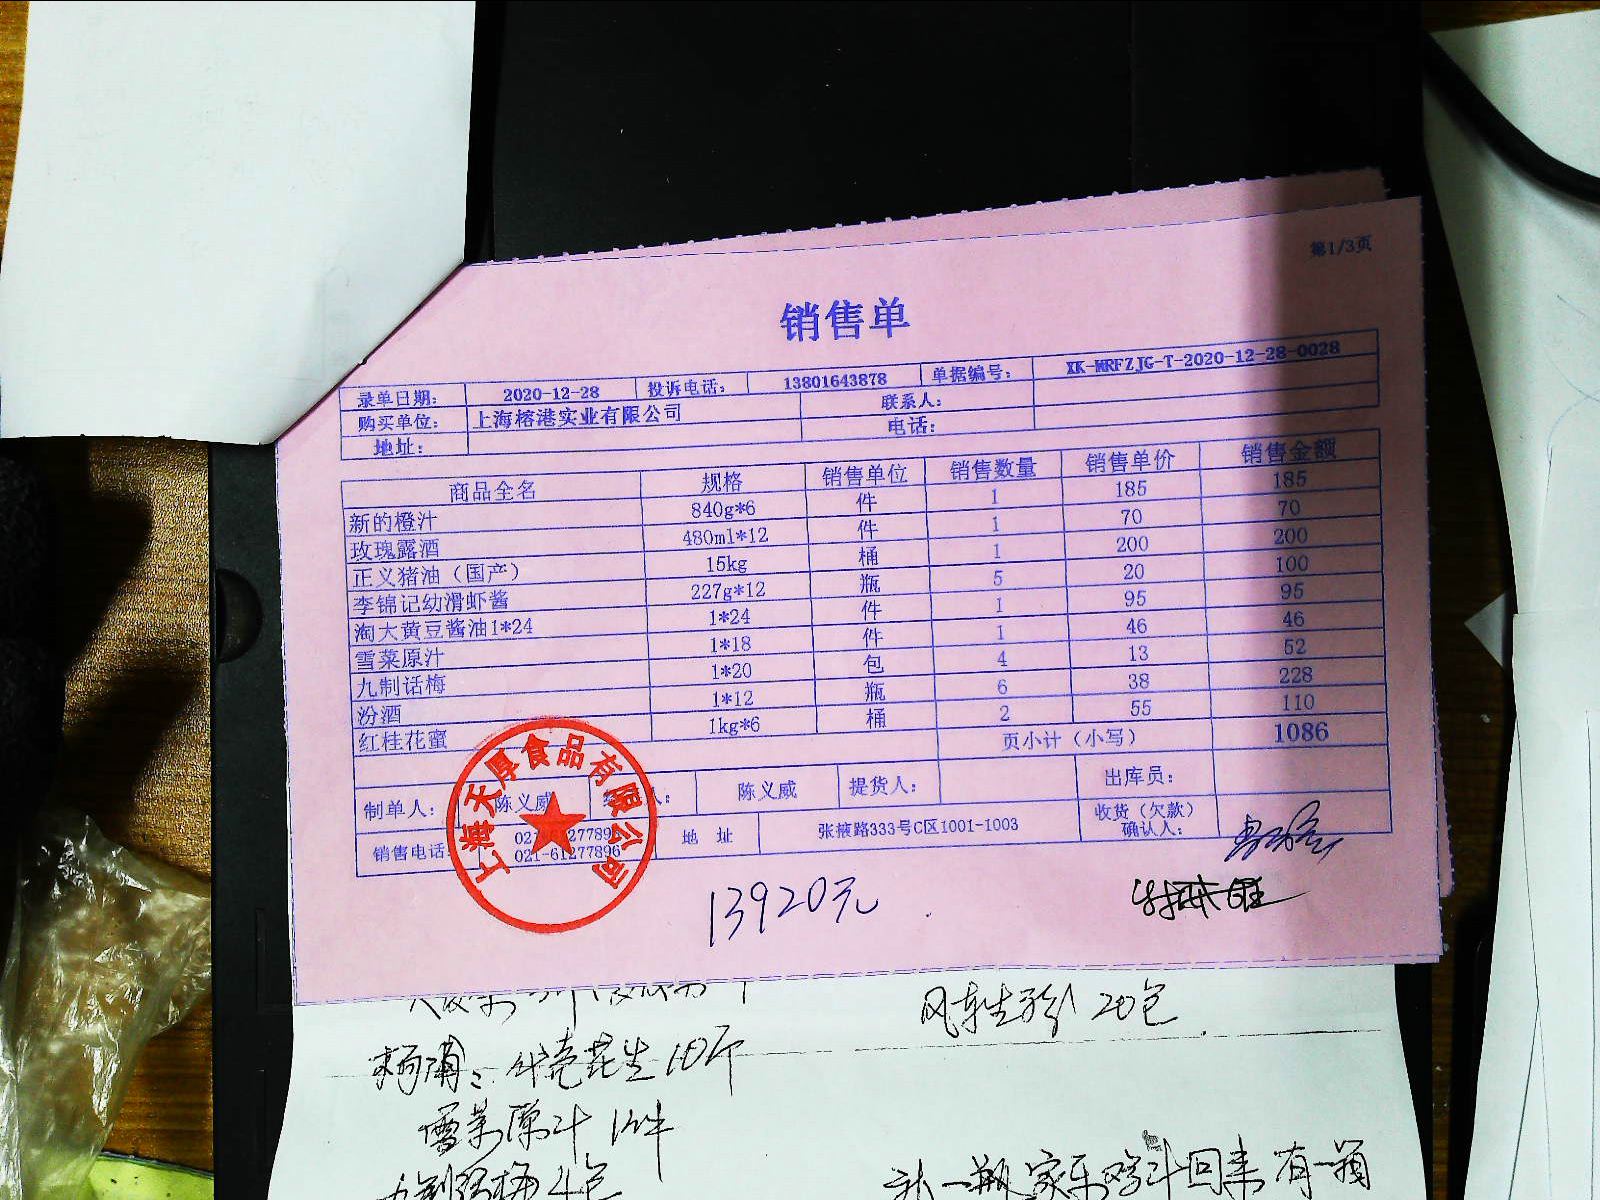 第1/3页
销售单
录单日期： 2020-12-28 投诉电话： 13801643878 单据编号： XK-MRFZJG-T-2020-12-28-0028
购买单位： 上海榕港实业有限公司 联系人：
地址： 电话：
商品全名 规格 销售单位 销售数量 销售单价 销售金额
新的橙汁 840g*6 件 1 185 185
玫瑰露酒 480ml*12 件 1 70 70
正义猪油（国产） 15kg 桶 1 200 200
李锦记幼滑虾酱 227g*12 瓶 5 20 100
淘大黄豆酱油1*24 1*24 件 1 95 95
雪菜原汁 1*18 件 1 46 46
九制话梅 1*20 包 4 13 52
汾酒 1*12 瓶 6 38 228
红桂花蜜 1kg*6 桶 2 55 110
页小计（小写） 1086
制单人： 陈义威 人： 陈义威 提货人： 出库员：
销售电话： 021-61277896 地 址 张掖路333号C区1001-1003 收货（欠款）
021-61277896 确认人：
上海天厚食品有限公司
13920元
风车生粉 20包
杨浦：带壳花生10斤
雪菜原汁 1件
九制话梅 4包
一瓶家乐鸡汁回来有一箱